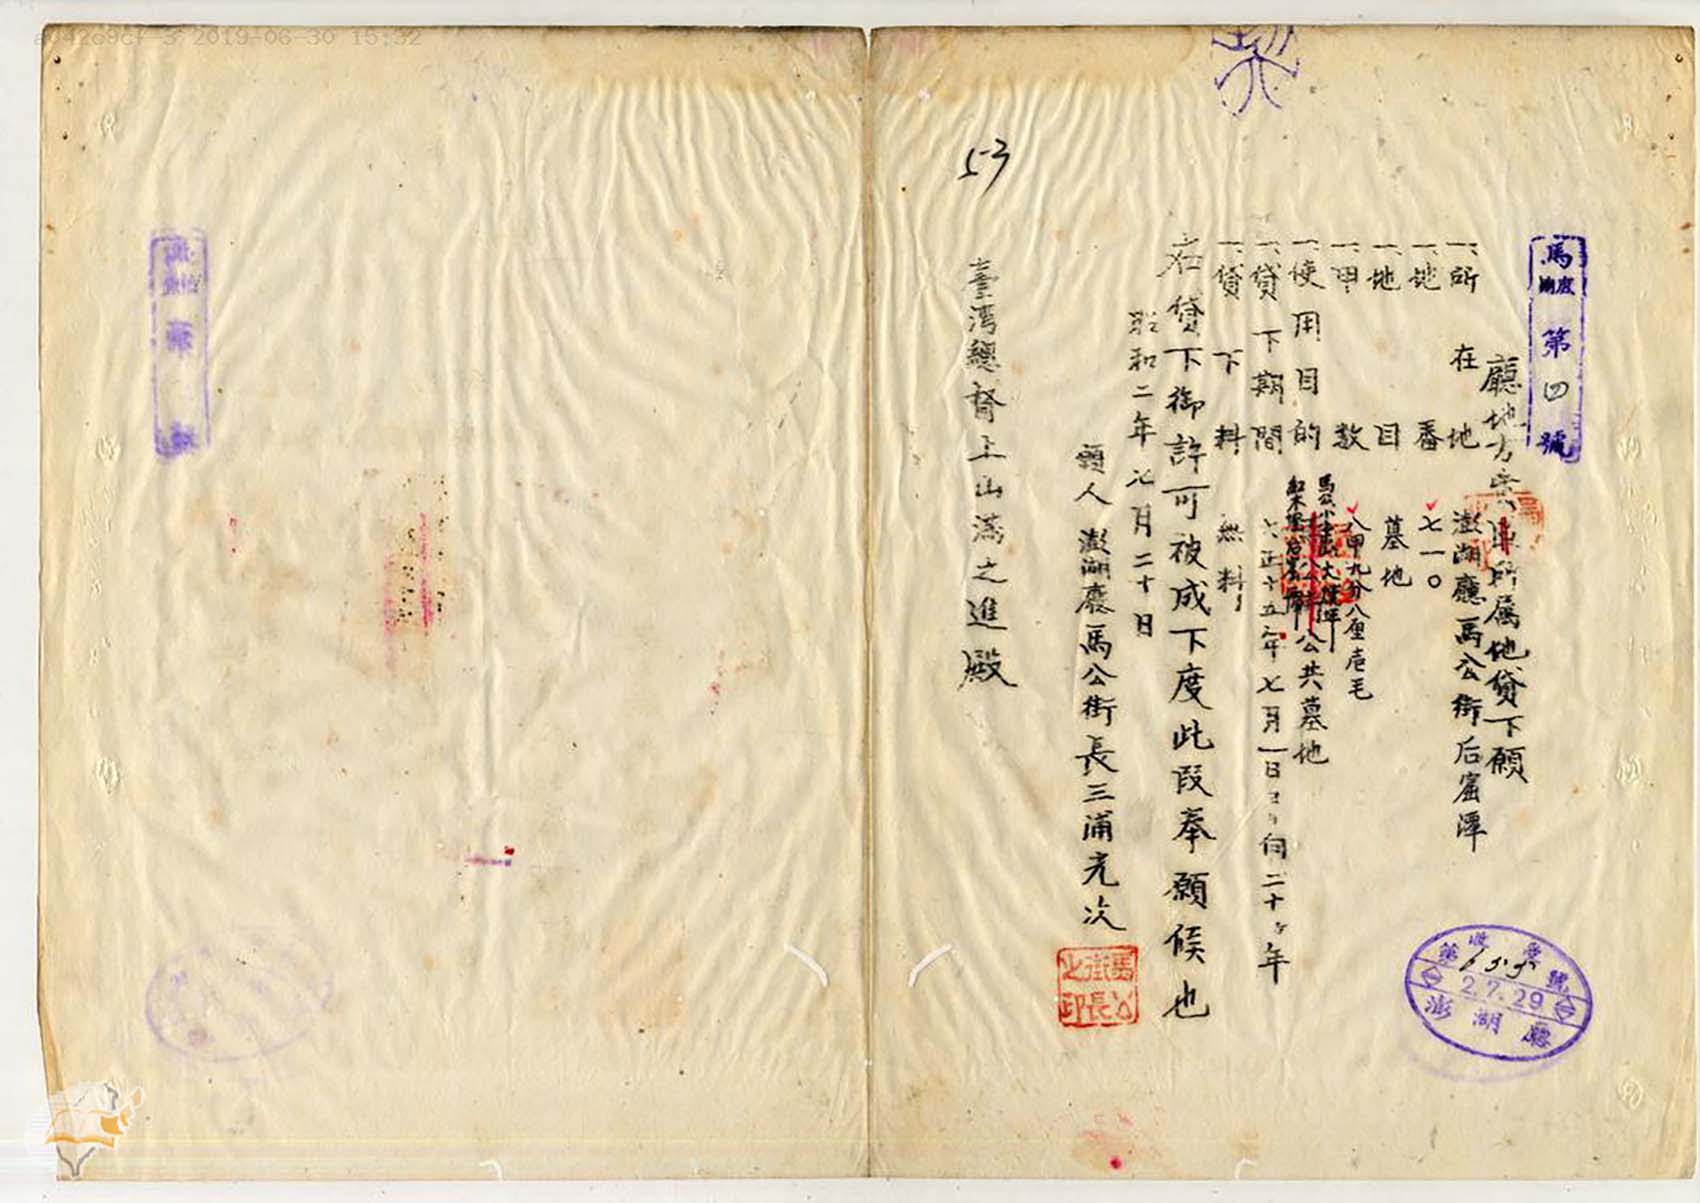 馬庶湖 第四號
廳地方費 所属地貸下願
一、所在地 澎湖廳馬公街后窟潭
一、地番 七一〇
一、地目 墓地
一、甲数 八甲九分八厘壱毛
一、使用目的 公共墓地
一、貸下期間 大正十五年七月一日 向二十 年
一、貸下料 無料
右貸下御許可被成下度此段奉願候也
昭和二年七月二十日
願人 澎湖廳馬公街長三浦光次
馬公街長之印
臺湾總督上山満之進殿
53
收受
第655號
2.7.29
澎湖廳
2019-06-30 15:32